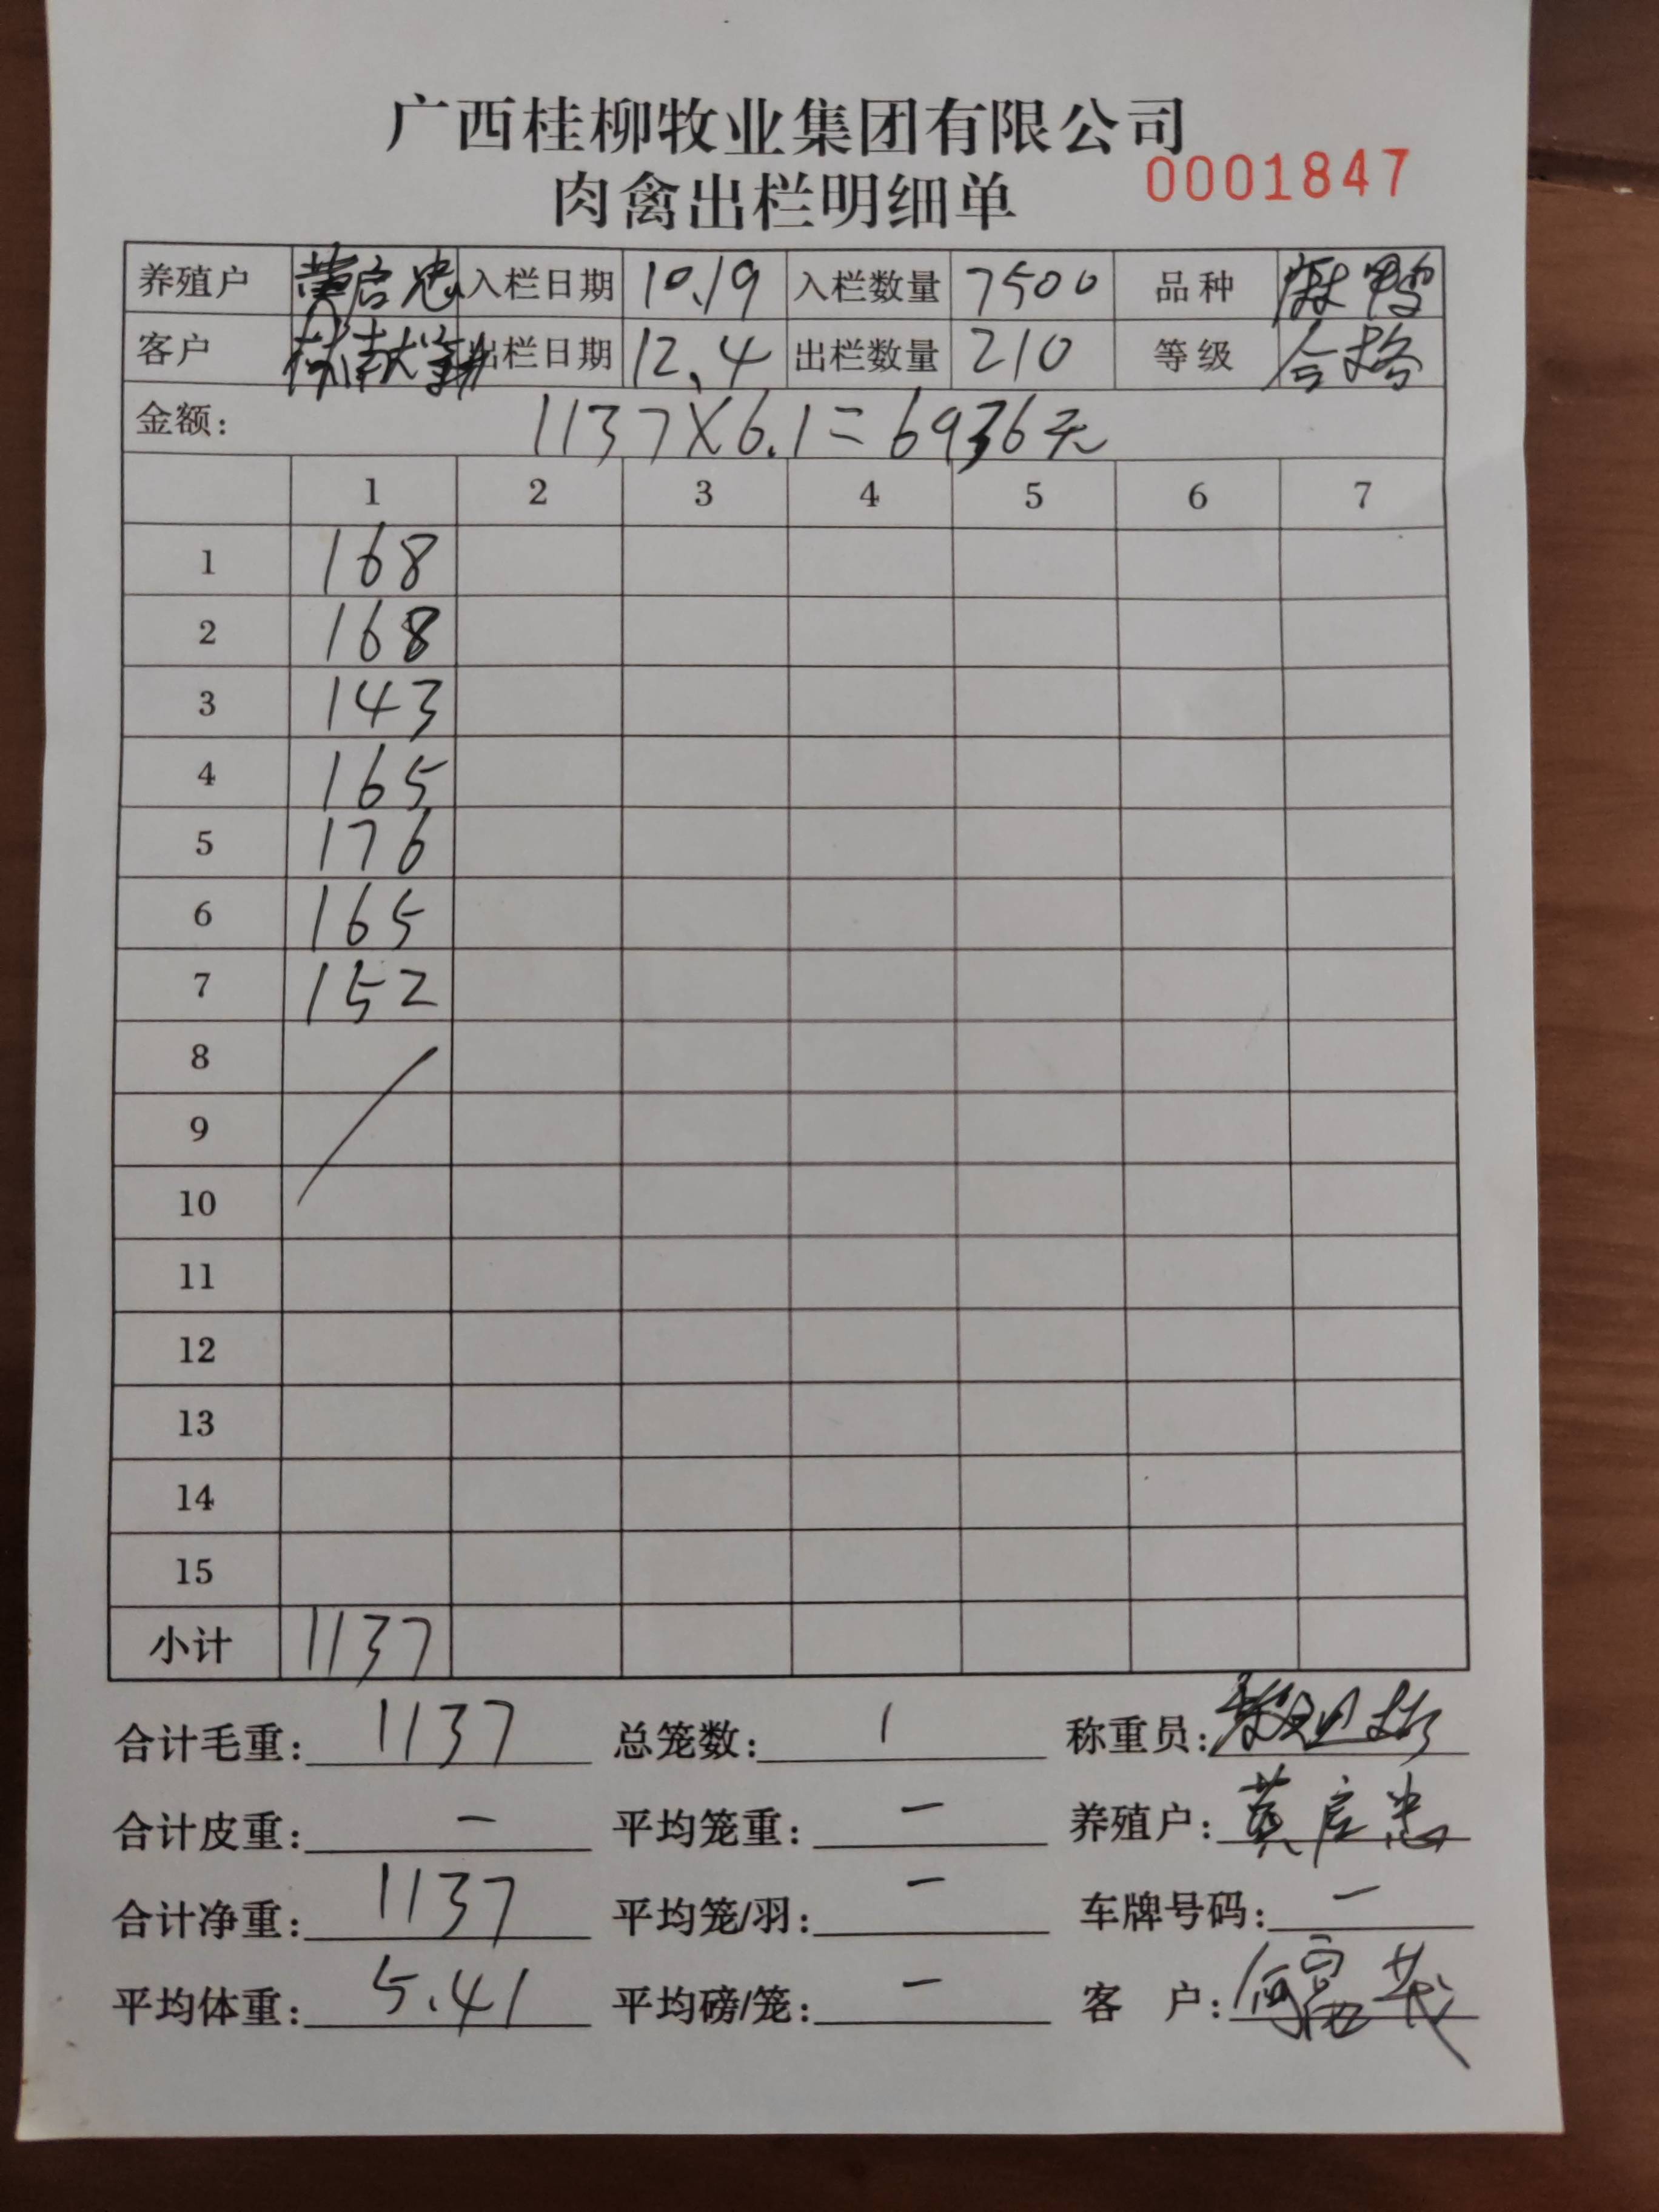 广西桂柳牧业集团有限公司
肉禽出栏明细单 0001847
养殖户 黄启忠 入栏日期 10.19 入栏数量 7500 品种 麻鸭
客户 出栏日期 12.4 出栏数量 210 等级 合格
金额: 1137X6.1=6936元
1 2 3 4 5 6 7
1 168
2 168
3 143
4 165
5 176
6 165
7 152
8
9
10
11
12
13
14
15
小计 1137
合计毛重: 1137 总笼数: 1 称重员:
合计皮重: — 平均笼重: — 养殖户: 黄启忠
合计净重: 1137 平均笼/羽: — 车牌号码: —
平均体重: 5.41 平均磅/笼: — 客 户: